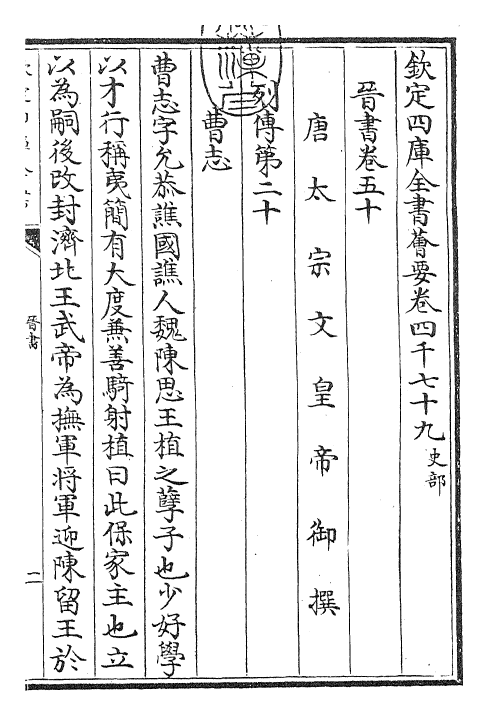 欽定四庫全書薈要卷四千七十九史部
晉書卷五十
唐太宗文皇帝御撰
列傳第二十
曹志
曹志字允恭譙國譙人魏陳思王植之孽子也少好學
以才行稱夷簡有大度兼善騎射植曰此保家主也立
以為嗣後改封濟北王武帝為撫軍將軍迎陳留王於
晉書